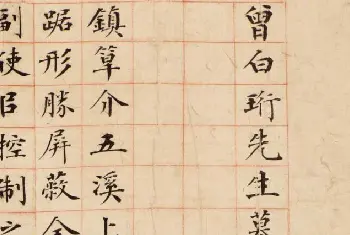 曾白珩先生墓
鎮筸介五溪上
踞形勝屏蔽全
副使召控制之